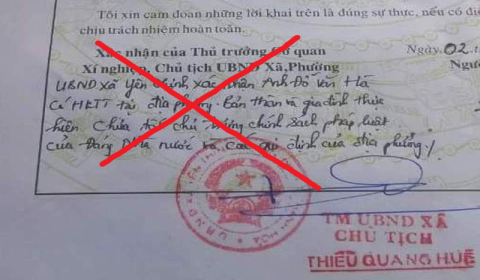 Tôi xin cam đoan những lời khai trên là đúng sự thực, nếu có đi
chịu trách nhiệm hoàn toàn.
Xác nhận của Thủ trưởng Cơ quan
Ngày 02.
Xí nghiệp, Chủ tịch UBND Xã, Phường
Ngườ
UBND xã Yên Chính xác nhận Anh Đỗ Văn Hà
Có HKTT tại địa phương. Bản thân và gia đình thực
hiện Chưa tốt chủ trương chính sách pháp luật
của Đảng Nhà nước và các quy định của địa phương./.
TM UBND XÃ
CHỦ TỊCH
THIỀU QUANG HUẾ